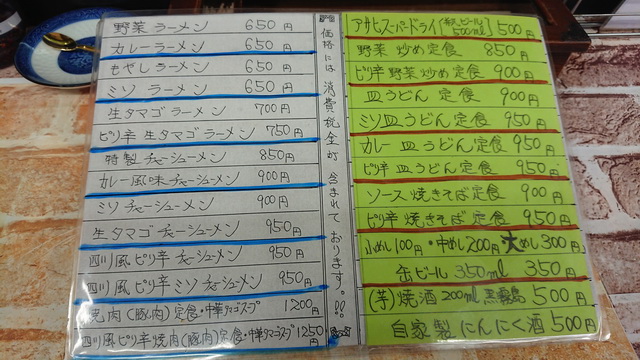 野菜 ラーメン 650円
カレーラーメン 650円
もやし ラーメン 650円
ミソ ラーメン 650円
生タマゴ ラーメン 700円
ピリ辛 生タマゴ ラーメン 750円
特製 チャーシューメン 850円
カレー風味 チャーシューメン 900円
ミソ チャーシューメン 900円
生タマゴ チャーシューメン 950円
四川風 ピリ辛 チャーシューメン 950円
四川風 ピリ辛 ミソ チャーシューメン 950円
焼肉(豚肉)定食・中華タマゴスープ 1200円
四川風ピリ辛焼肉(豚肉)定食・中華タマゴスープ 1250円
価格には 消費税金も 含まれて おります。!!
アサヒスーパードライ(瓶ビール 500ml) 500円
野菜 炒め定食 850円
ピリ辛 野菜 炒め定食 900円
皿うどん 定食 900円
ミソ皿うどん 定食 950円
カレー 皿うどん 定食 950円
ピリ辛 皿うどん 定食 950円
ソース 焼きそば 定食 900円
ピリ辛 焼きそば 定食 950円
小めし100円・中めし200円 大めし300円
缶ビール 350ml 350円
(芋)焼酒 200ml 黒霧島 500円
自家製 にんにく酒 500円